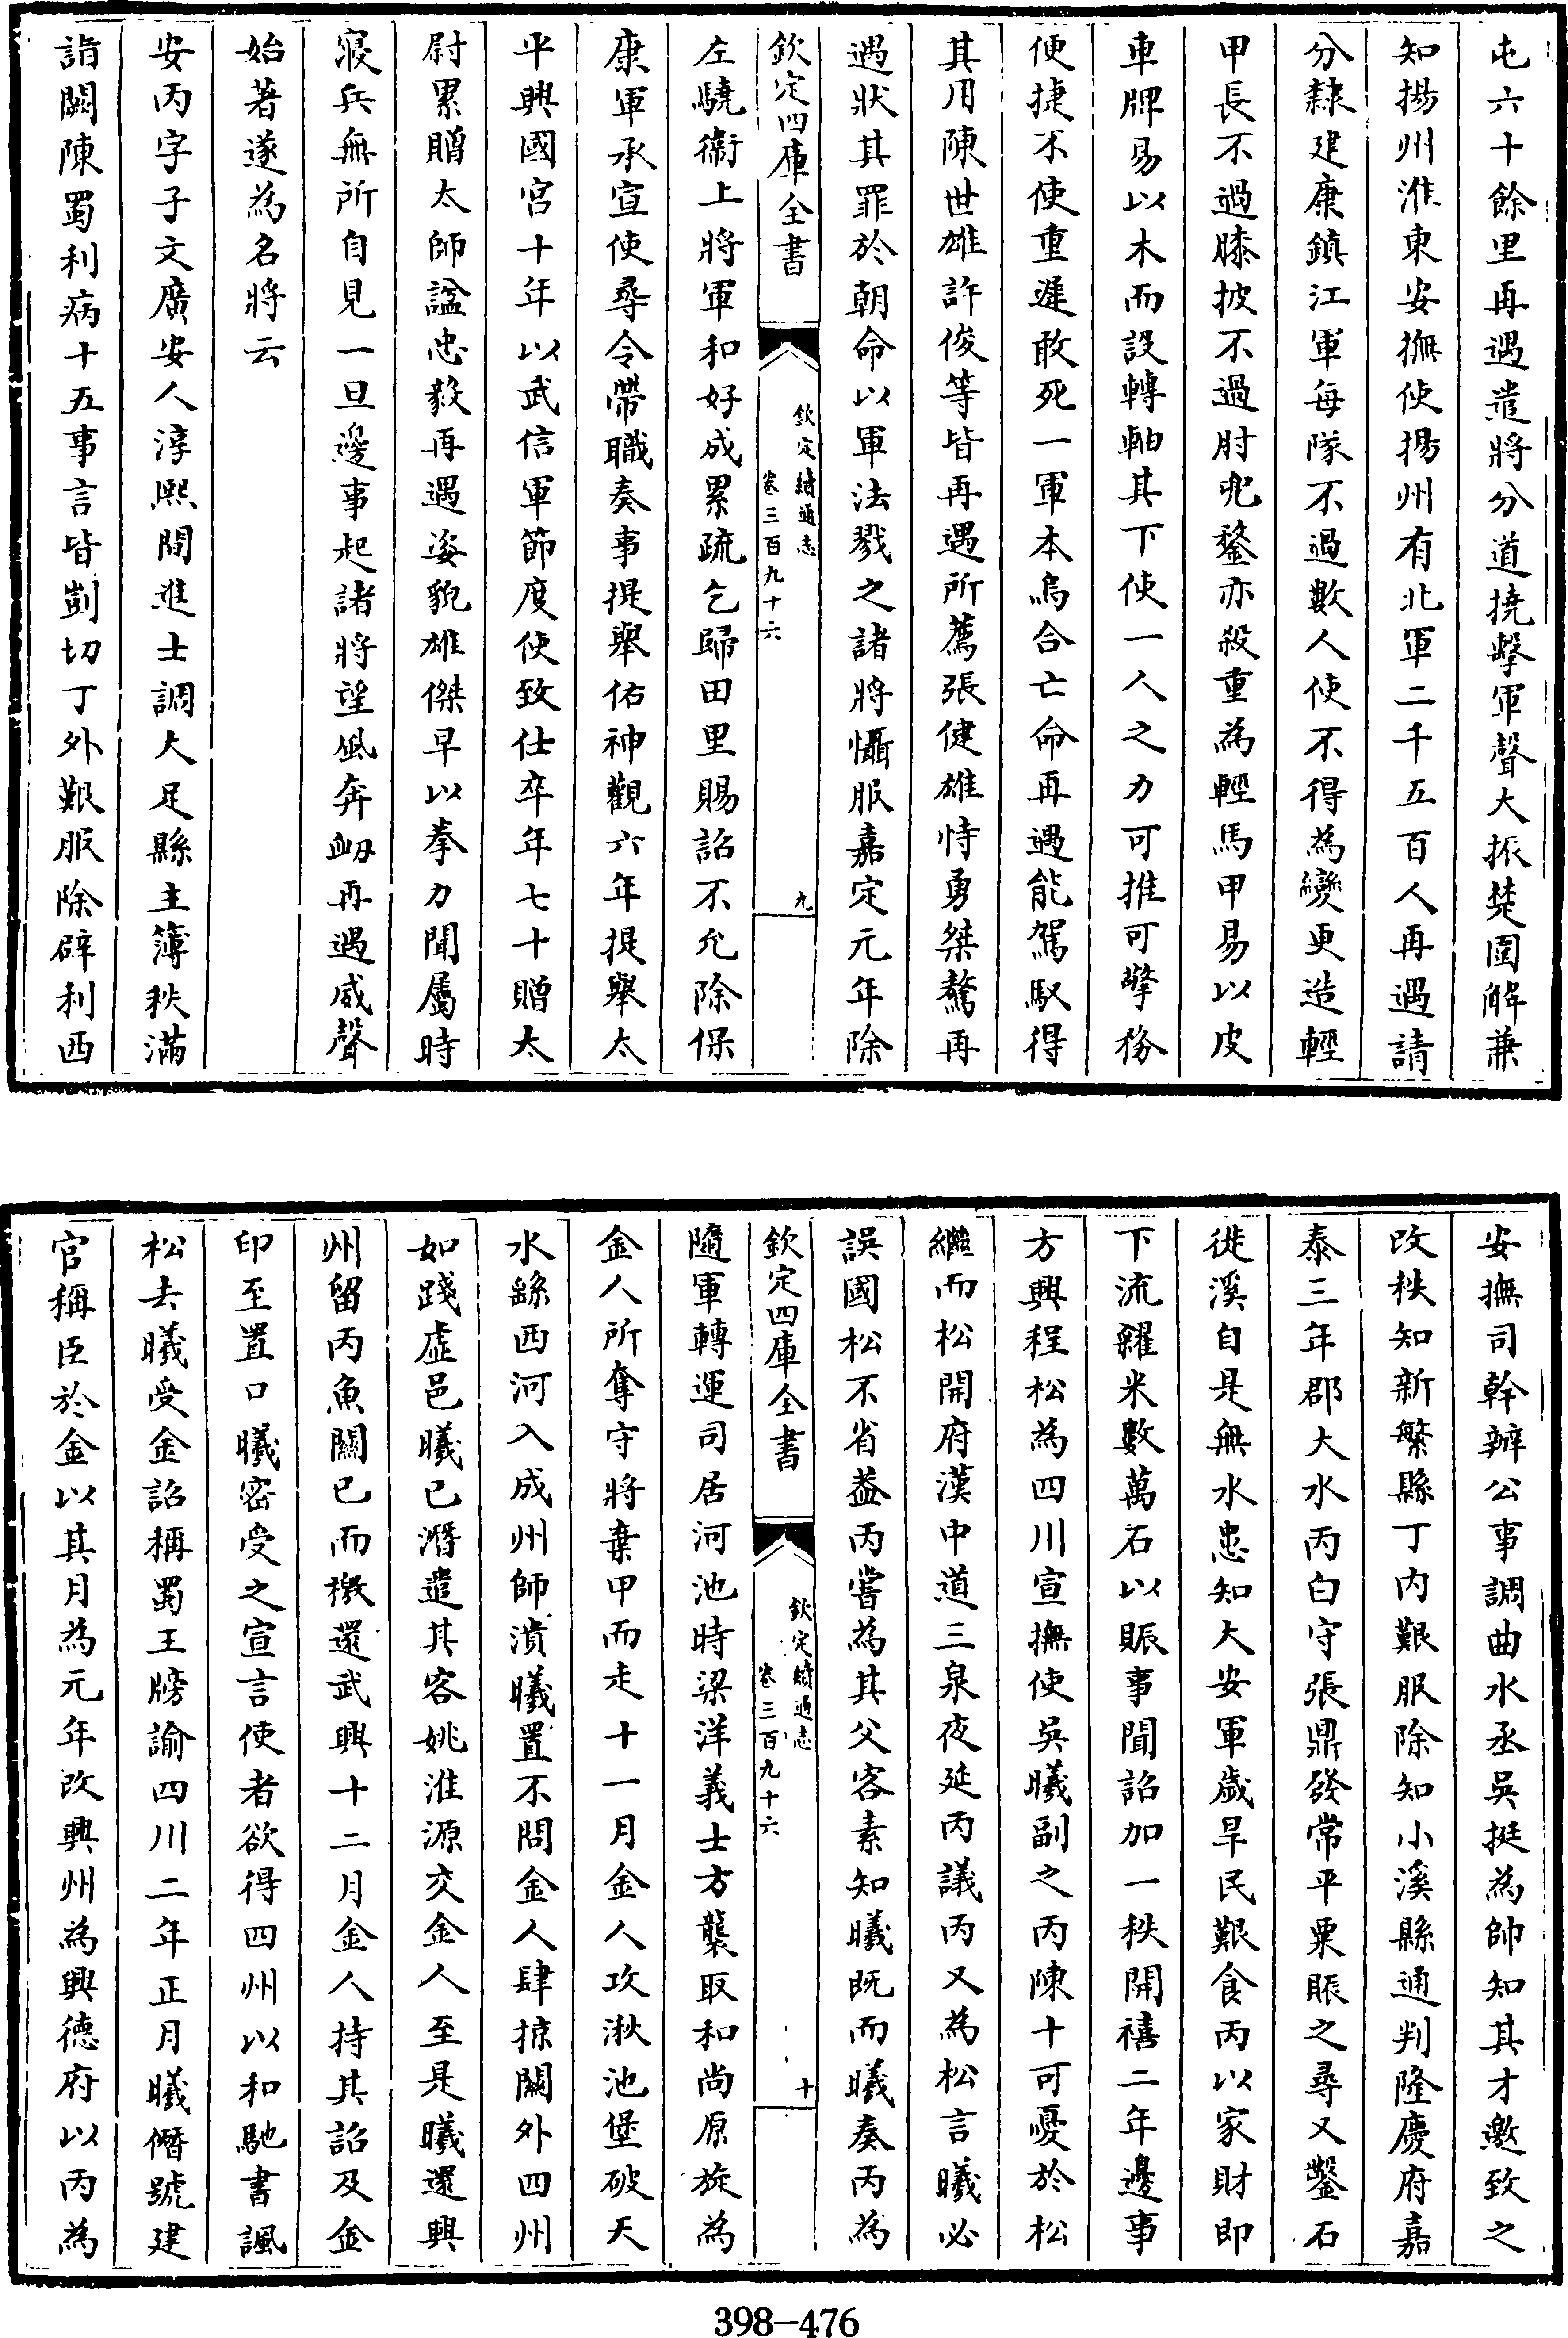 屯六十餘里再遇遣將分道撓擊軍聲大振楚圍解兼
知揚州淮東安撫使揚州有北軍二千五百人再遇請
分隸建康鎮江軍每隊不過數人使不得為變更造輕
甲長不過膝披不過肘兜鍪亦殺重為輕馬甲易以皮
車牌易以木而設轉軸其下使一人之力可推可擎務
便捷不使重遲敢死一軍本烏合亡命再遇能駕馭得
其用陳世雄許俊等皆再遇所薦張健雄恃勇桀驁再
遇狀其罪於朝命以軍法戮之諸將懾服嘉定元年除
欽定四庫全書
欽定續通志
卷三百九十六
九
左驍衛上將軍和好成累疏乞歸田里賜詔不允除保
康軍承宣使尋令帶職奏事提舉佑神觀六年提舉太
平興國宮十年以武信軍節度使致仕卒年七十贈太
尉累贈太師諡忠毅再遇姿貌雄傑早以拳力聞屬時
寢兵無所自見一旦邊事起諸將望風奔衂再遇威聲
始著遂為名將云
安丙字子文廣安人淳熙間進士調大足縣主簿秩滿
詣闕陳蜀利病十五事言皆剴切丁外艱服除辟利西
安撫司幹辦公事調曲水丞吳挺為帥知其才邀致之
改秩知新繁縣丁內艱服除知小溪縣通判隆慶府嘉
泰三年郡大水丙白守張鼎發常平粟賑之尋又鑿石
徙溪自是無水患知大安軍歲旱民艱食丙以家財即
下流糴米數萬石以賑事聞詔加一秩開禧二年邊事
方興程松為四川宣撫使吳曦副之丙陳十可憂於松
繼而松開府漢中道三泉夜延丙議丙又為松言曦必
誤國松不省蓋丙嘗為其父客素知曦既而曦奏丙為
欽定四庫全書
欽定續通志
卷三百九十六
十
隨軍轉運司居河池時梁洋義士方襲取和尚原旋為
金人所奪守將棄甲而走十一月金人攻湫池堡破天
水繇西河入成州師潰曦置不問金人肆掠關外四州
如踐虛邑曦已潛遣其客姚淮源交金人至是曦還興
州留丙魚關已而檄還武興十二月金人持其詔及金
印至置口曦密受之宣言使者欲得四州以和馳書諷
松去曦受金詔稱蜀王牓諭四川二年正月曦僭號建
官稱臣於金以其月為元年改興州為興德府以丙為
398-476